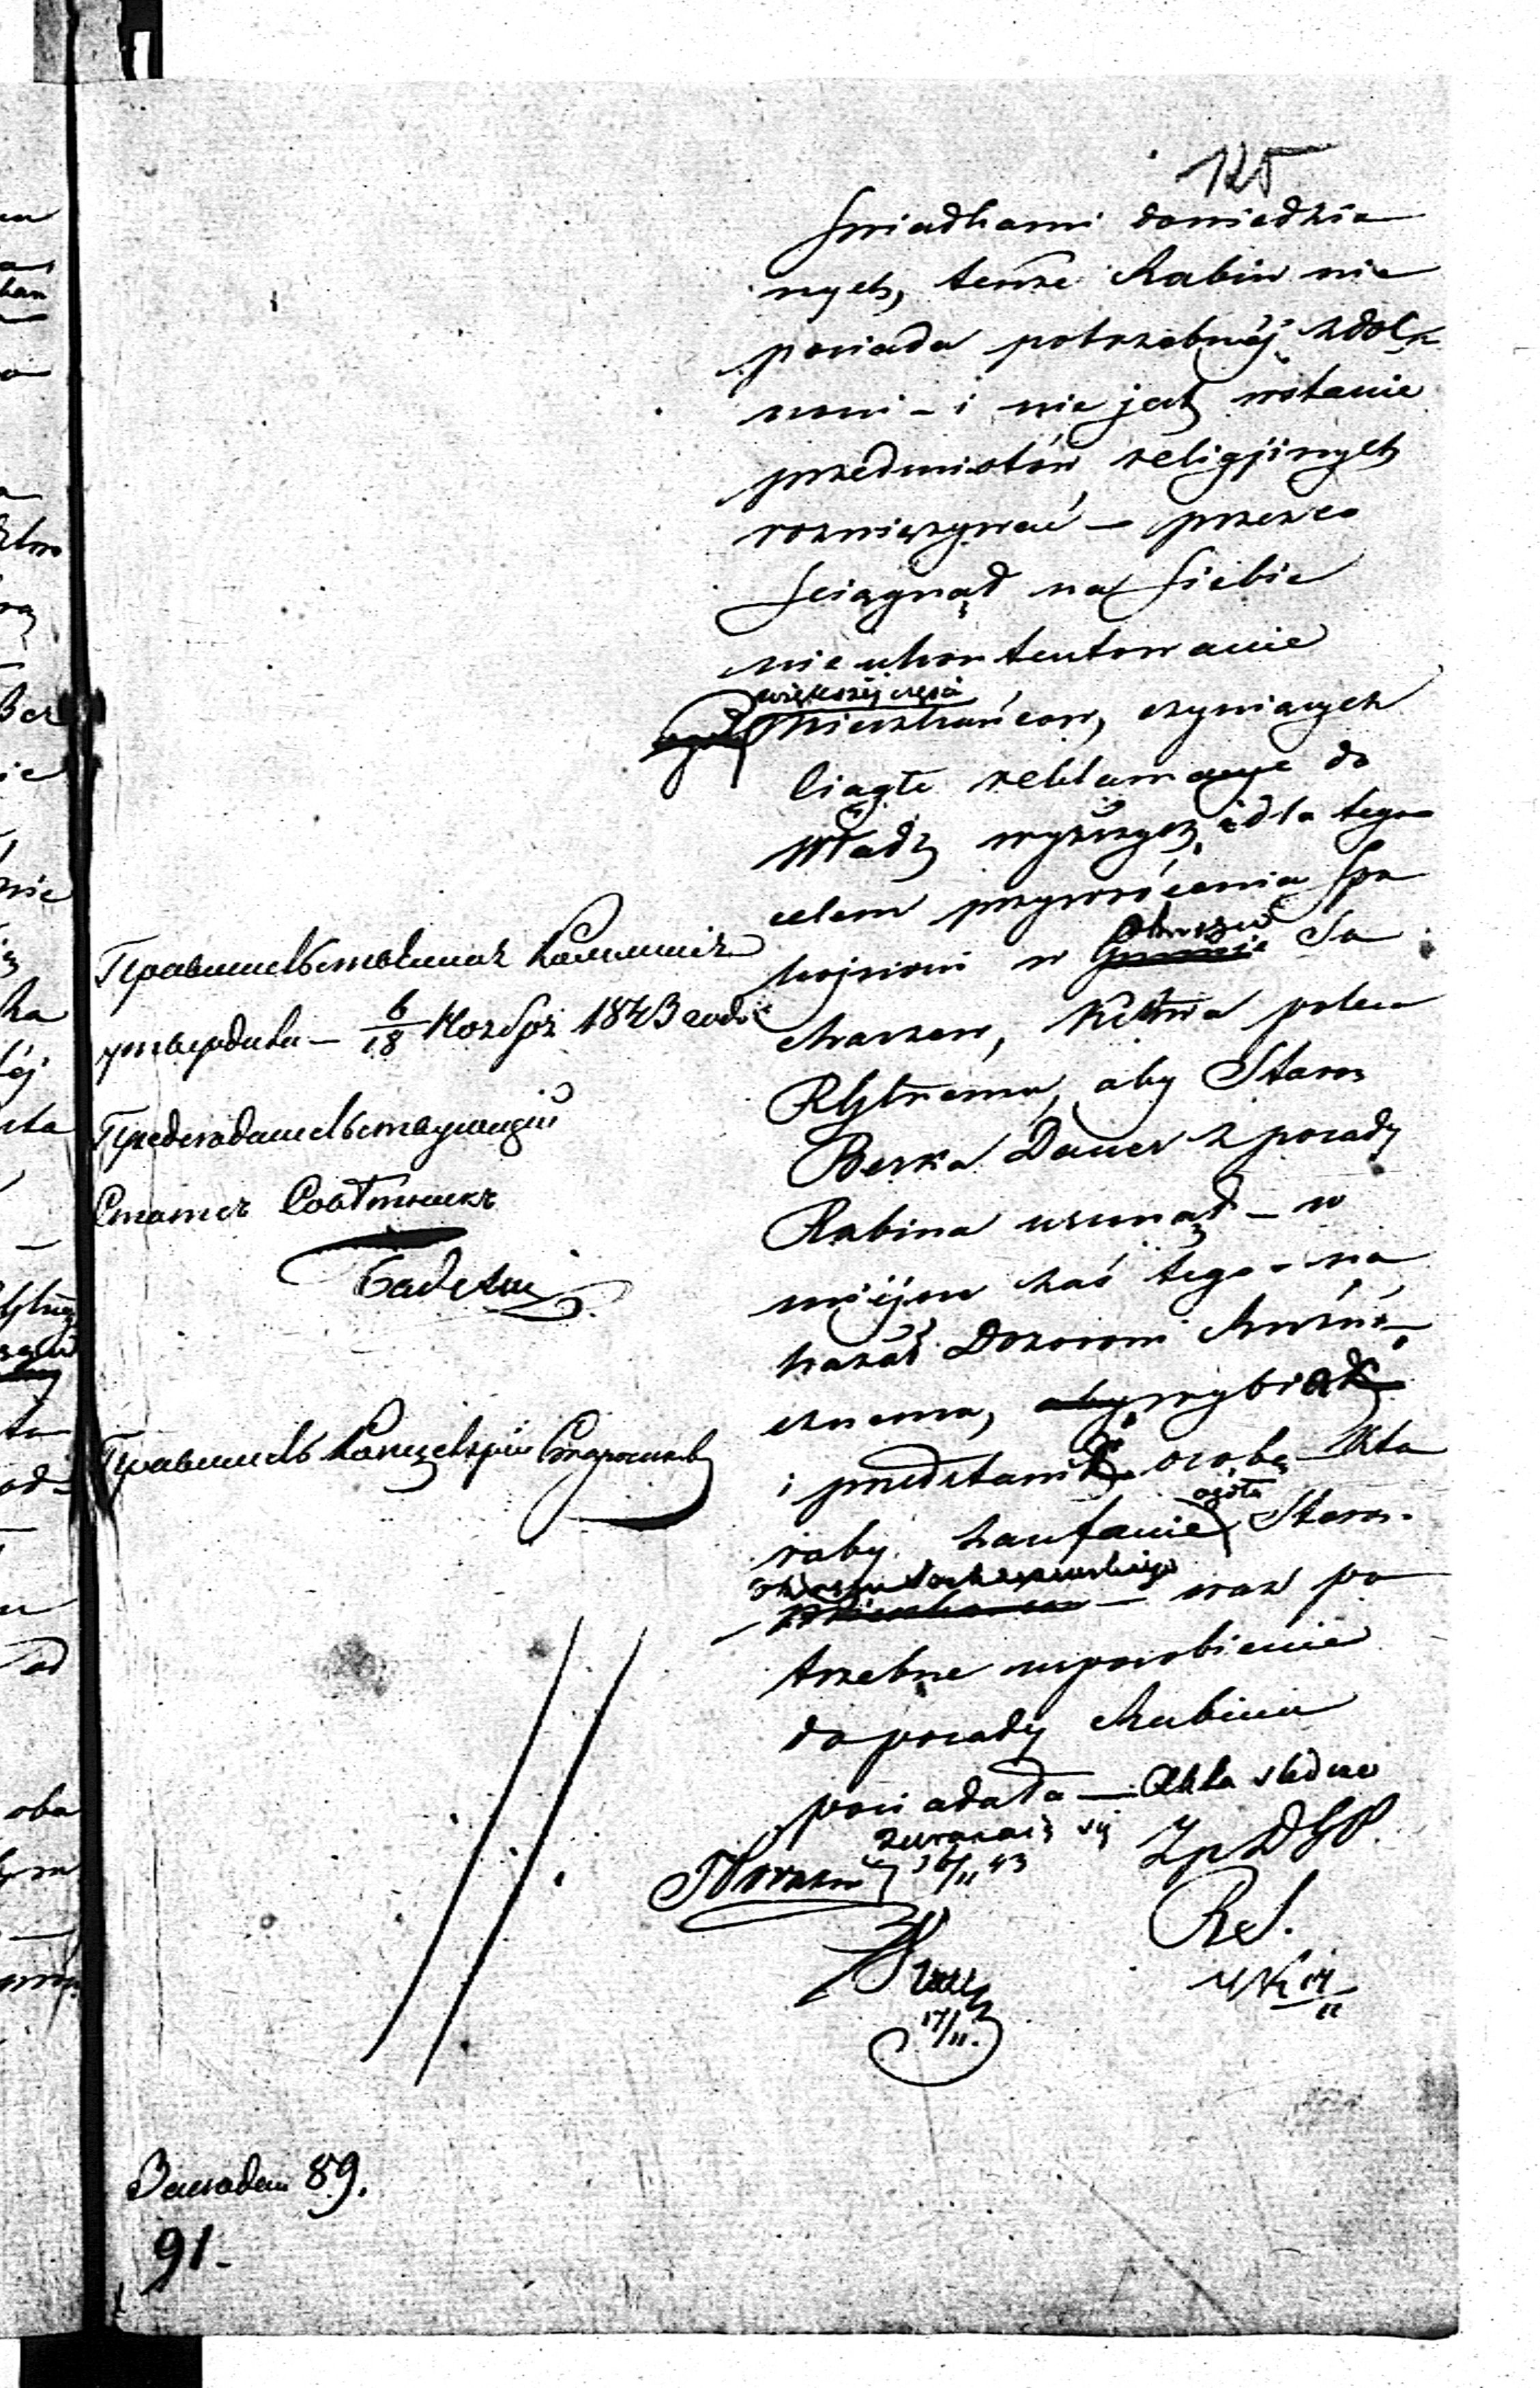 125
świadkami dowiedzio
nych, tenże Rabin nie
posiada potrzebnéj zdol
ności – i nie jest wstanie
przedmiotów religijnych
rozwięzywać – przez co
ściągnął na siebie
nieukontentowanie
większéj części
Mieszkańców, czyniących
ciągłe reklamacye do
Władz wyższych, i dla tego
celem przywrócenia spo
kojności w Gminie So
Okręgu
chaczew, Kttria poleca
aby Staroz
Berka Dauer z posady
Rabina usunął – w
miéjsce zaś tego – na
kazał Dozorowi Bożni
cznemu, aby wybrał
i przedstawił osobę któ
ogółu
raby zaufanie Staroz.
Okręgu Sochaczewskiego
– oraz po
trzebne usposobienie
do posady Rabina
posiadała – Akta śledcze
zwracają się
16/11 43
Z p D G P
Ref.
17/11.
Правительственная Коммисія
утвердила – 6/18 Ноября 1843 года
Председательствующій
Статскъ Совѣтникъ
Правитель Канцеляріи
89.
91.